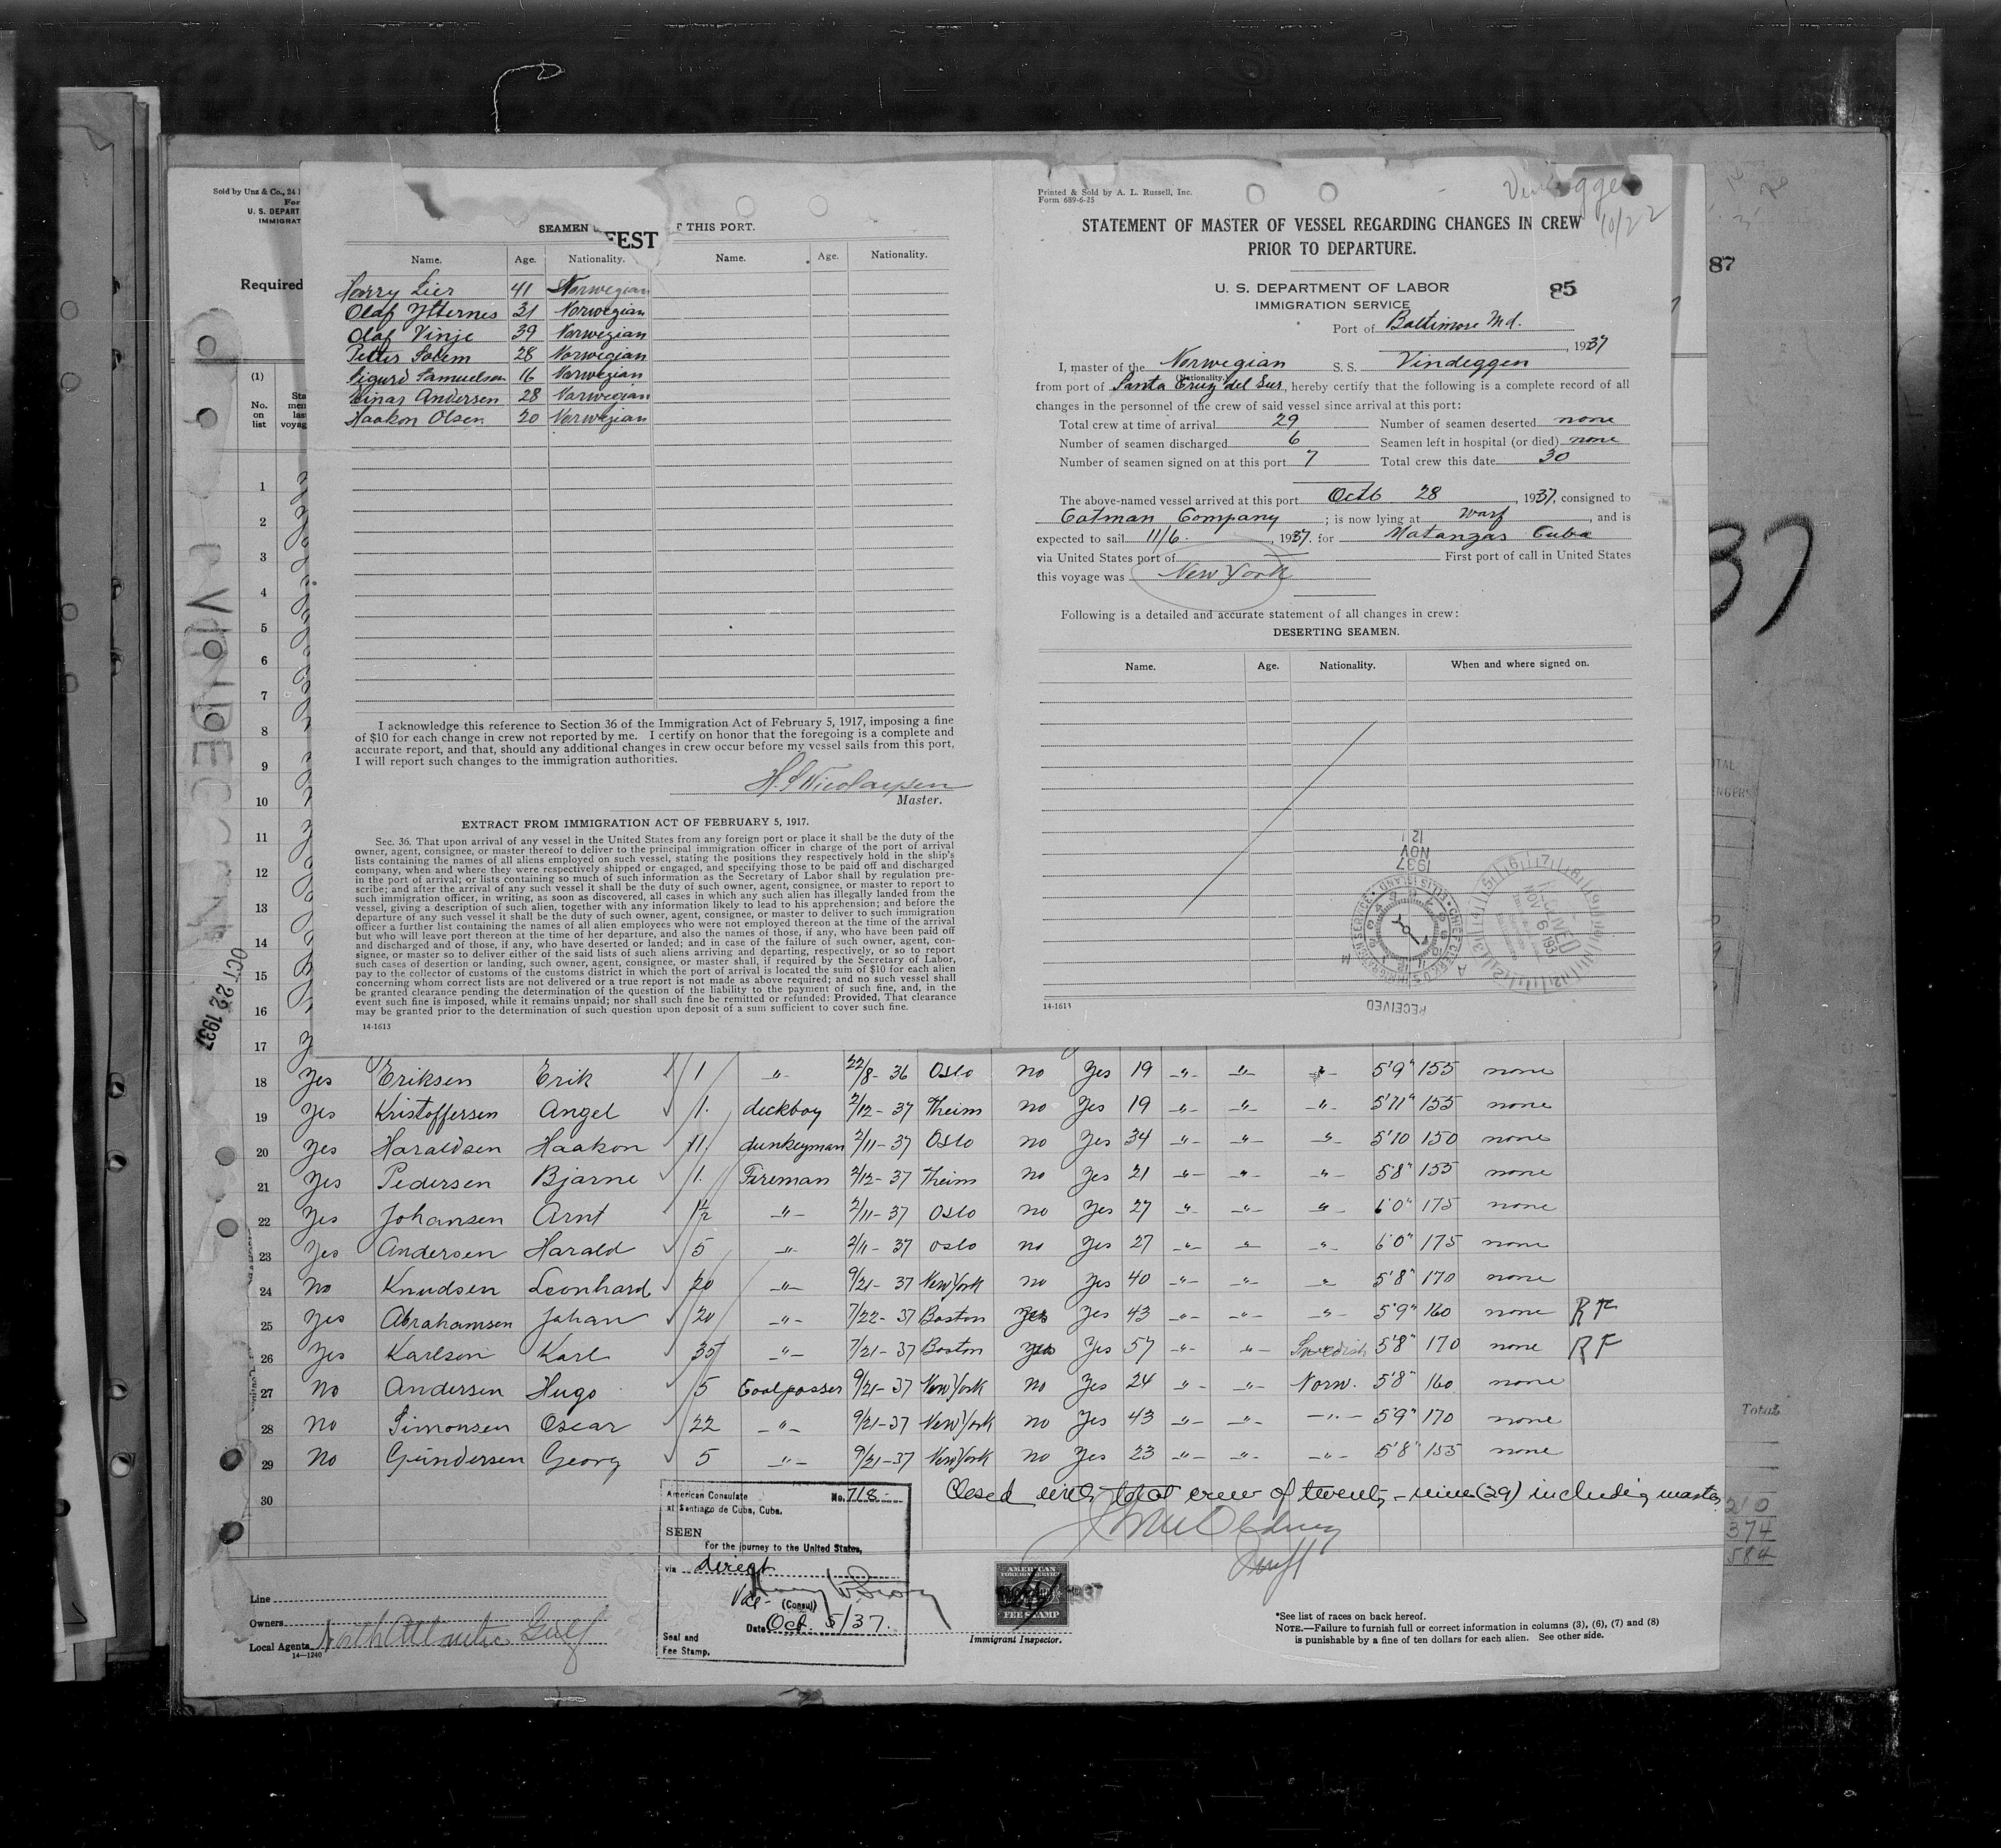 Sold by Unz & Co., 24
For
U. S. DEPART
IMMIGRAT
Required
(1)
No.
on
list
Sta
men
las
voyag
SEAMEN
FEST
THIS PORT.
Name. Age. Nationality. Name. Age. Nationality.
Harry Lier 41 Norwegian
Olaf Ytternes 31 Norwegian
Olaf Vinje 39 Norwegian
Petter Solem 28 Norwegian
Sigurd Samuelsen 16 Norwegian
Einar Andersen 28 Norwegian
Haakon Olsen 20 Norwegian
I acknowledge this reference to Section 36 of the Immigration Act of February 5, 1917, imposing a fine
of $10 for each change in crew not reported by me. I certify on honor that the foregoing is a complete and
accurate report, and that, should any additional changes in crew occur before my vessel sails from this port,
I will report such changes to the immigration authorities.
H. S. Nicolaysen
Master.
EXTRACT FROM IMMIGRATION ACT OF FEBRUARY 5, 1917.
Sec. 36. That upon arrival of any vessel in the United States from any foreign port or place it shall be the duty of the
owner, agent, consignee, or master thereof to deliver to the principal immigration officer in charge of the port of arrival
lists containing the names of all aliens employed on such vessel, stating the positions they respectively hold in the ship's
company, when and where they were respectively shipped or engaged, and specifying those to be paid off and discharged
in the port of arrival; or lists containing so much of such information as the Secretary of Labor shall by regulation pre-
scribe; and after the arrival of any such vessel it shall be the duty of such owner, agent, consignee, or master to report to
such immigration officer, in writing, as soon as discovered, all cases in which any such alien has illegally landed from the
vessel, giving a description of such alien, together with any information likely to lead to his apprehension; and before the
departure of any such vessel it shall be the duty of such owner, agent, consignee, or master to deliver to such immigration
officer a further list containing the names of all alien employees who were not employed thereon at the time of the arrival
but who will leave port thereon at the time of her departure, and also the names of those, if any, who have been paid off
and discharged and of those, if any, who have deserted or landed; and in case of the failure of such owner, agent, con-
signee, or master so to deliver either of the said lists of such aliens arriving and departing, respectively, or so to report
such cases of desertion or landing, such owner, agent, consignee, or master shall, if required by the Secretary of Labor,
pay to the collector of customs of the customs district in which the port of arrival is located the sum of $10 for each alien
concerning whom correct lists are not delivered or a true report is not made as above required; and no such vessel shall
be granted clearance pending the determination of the question of the liability to the payment of such fine, and, in the
event such fine is imposed, while it remains unpaid; nor shall such fine be remitted or refunded: Provided, That clearance
may be granted prior to the determination of such question upon deposit of a sum sufficient to cover such fine.
14-1613
Printed & Sold by A. L. Russell, Inc.
Form 689-6-25
Vindeggen
10/22
STATEMENT OF MASTER OF VESSEL REGARDING CHANGES IN CREW
PRIOR TO DEPARTURE.
U. S. DEPARTMENT OF LABOR
IMMIGRATION SERVICE
85
Port of Baltimore Md.
, 1937
I, master of the Norwegian S. S. Vindeggen
(Nationality.)
from port of Santa Cruz del Sur, hereby certify that the following is a complete record of all
changes in the personnel of the crew of said vessel since arrival at this port:
Total crew at time of arrival 29 Number of seamen deserted none
Number of seamen discharged 6 Seamen left in hospital (or died) none
Number of seamen signed on at this port 7 Total crew this date 30
The above-named vessel arrived at this port Octb 28, 1937, consigned to
Eatman Company; is now lying at warf, and is
expected to sail 11/6., 1937. for Matangas Cuba
via United States port of First port of call in United States
this voyage was New York
Following is a detailed and accurate statement of all changes in crew:
DESERTING SEAMEN.
Name. Age. Nationality. When and where signed on.
12
NOV
1937
ELLIS ISLAND
RECEIVED
NOV 6 193
14-1613
87
37
VINDEGGEN
OCT 22 1937
1
2
3
4
5
6
7
8
9
10
11
12
13
14
15
16
17
18 Yes Eriksen Erik 1 -"- 22/8-36 Oslo no Yes 19 -"- -"- -"- 5'9" 155 none
19 Yes Kristoffersen Angel 1. deckboy 2/12-37 Theim no Yes 19 -"- -"- -"- 5'11" 155 none
20 Yes Haraldsen Haakon 11 dunkeyman 2/11-37 Oslo no Yes 34 -"- -"- -"- 5'10 150 none
21 Yes Pedersen Bjarne 1. Fireman 2/12-37 Theim no Yes 21 -"- -"- -"- 5'8" 155 none
22 Yes Johansen Arnt 1½ -"- 2/11-37 Oslo no Yes 27 -"- -"- -"- 6'0" 175 none
23 Yes Andersen Harald 5 -"- 2/11-37 Oslo no Yes 27 -"- -"- -"- 6'0" 175 none
24 No Knudsen Leonhard 20 -"- 9/21-37 New York no Yes 40 -"- -"- -"- 5'8" 170 none
25 Yes Abrahamsen Johan 20 -"- 7/22-37 Boston Yes Yes 43 -"- -"- -"- 5'9" 160 none RF
26 Yes Karlson Karl 35 -"- 7/21-37 Boston Yes Yes 57 -"- -"- Swedish 5'8 170 none RF
27 No Andersen Hugo 5 Coalpasser 9/21-37 New York no Yes 24 -"- -"- Norw. 5'8" 160 none
28 No Simonsen Oscar 22 -"- 9/21-37 New York no Yes 43 -"- -"- -"- 5'9" 170 none
29 No Gundersen Georg 5 -"- 9/21-37 New York no Yes 23 -"- -"- -"- 5'8" 155 none
30 Closed with total crew of twenty-nine (29) including master
American Consulate No. 718
at Santiago de Cuba, Cuba.
SEEN
For the journey to the United States,
via direct
Vice-
(Consul)
Date Oct 5/37.
Seal and
Fee Stamp.
AMERICAN
FOREIGN SERVICE
FEE STAMP
Immigrant Inspector.
Line
Owners
Local Agents North Atlantic Gulf
14-1240
*See list of races on back hereof.
NOTE.—Failure to furnish full or correct information in columns (3), (6), (7) and (8)
is punishable by a fine of ten dollars for each alien. See other side.
Total
210
374
584